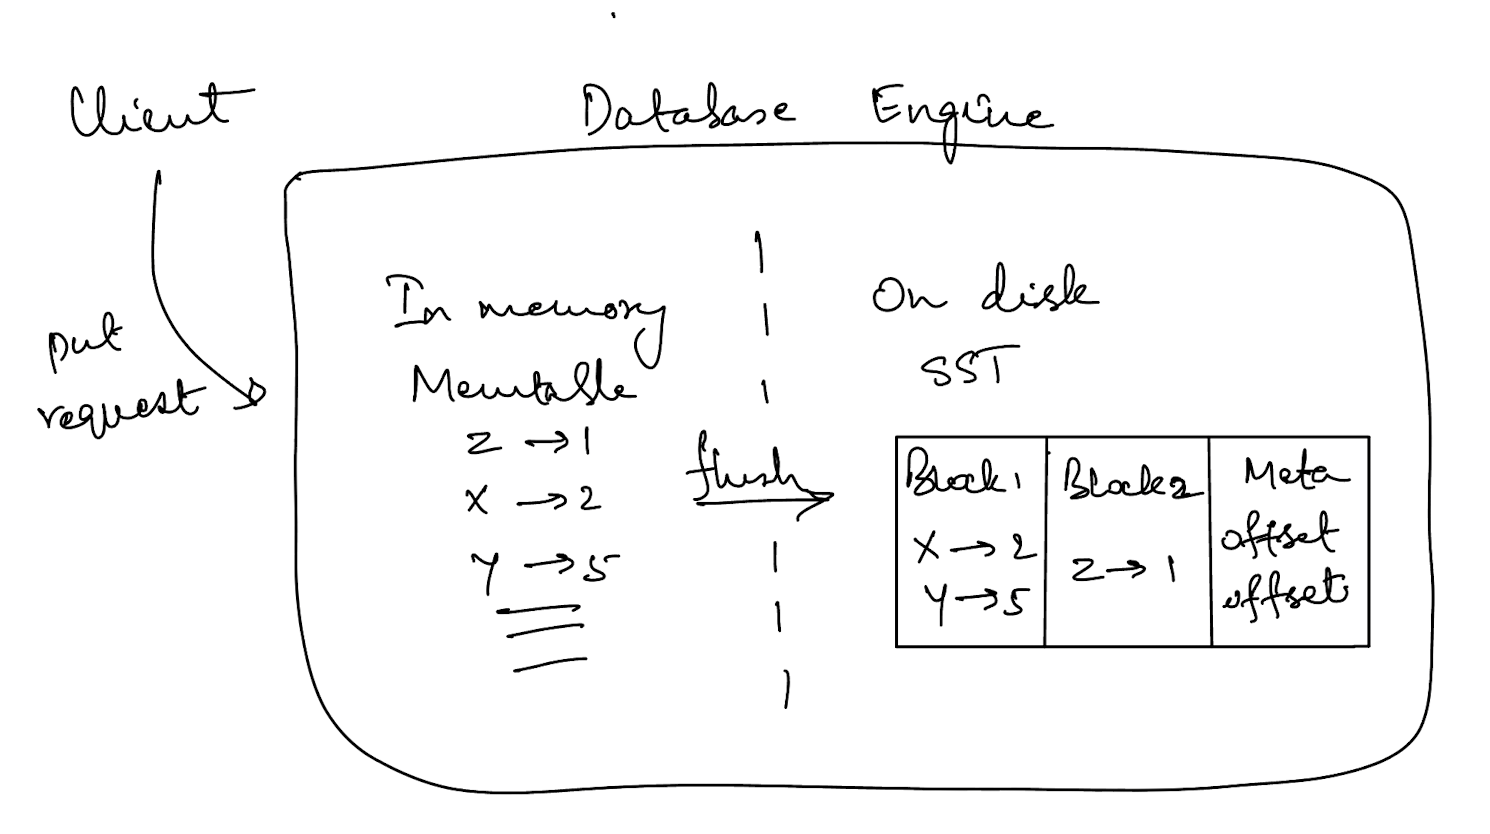 Client
Database Engine
put
request
In memory
Memtable
Z → 1
X → 2
Y → 5
flush
On disk
SST
Block1
X → 2
Y → 5
Block2
Z → 1
Meta
offset
offset